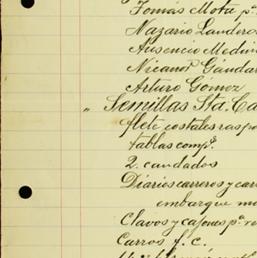 Tomás Mota p.
Nazario Landero
Ausencio Medin
Nicanor Gándar
Arturo Gómez
" Semillas Sta. Ca
flete costales ras po
tablas comp.s
2. candados
Diarios carreros y car
embarque m
Clavos y cajones p.a r
Carros f. c.